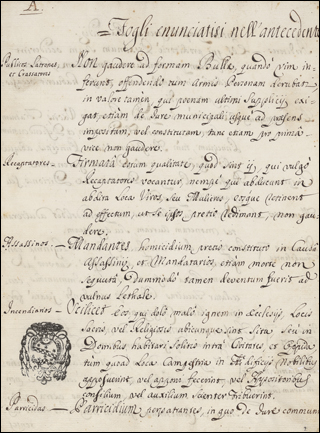 A.
Fogli enunciatisi nell'antecedente
Publicos Latrones, et Crassatores — NON gaudere ad formam Bullæ, quando vim in
ferunt, offendendo cum Armis Personam derobatã
in valore tamen, qui poenam ultimi Supplicij exi
gat, etiam de Jure municipali, usque ad præsens
impositam, vel constitutam, tunc etiam pro prima
vice non gaudere.
Receptatores — Firmata eorum qualitate, quod sint ij, qui vulgo
Recaptatores vocantur, nempe qui abducunt in
abdita Loca Viros, seu Mulieres, eosque detinent
ad effectum, ut se ipsos pretio redimant, non gau
dere.
Assassinos — Mandantes homicidium pretio constituto in Causa
Assassinij, et Mandatarios, etiam morte non
sequuta, Dummodo tamen deventum fuerit ad
vulnus Lethale.
Incendiarios — Vel licet Eos qui dolo malo ignem in Ecclesijs, Locis
Sacris, vel Religiosis ubicunque sint Sita, seu in
Domibus habitari Solitis intra Civitates, et Oppida
tum quoad Loca Campestria in Ædificijs Nobilibus
apposuerint, vel apponi fecerint, vel Appositoribus
consilium, vel auxilium Scienter tribuerint.
Parricidas — Parricidium perpetrantes, in quo de Jure communi